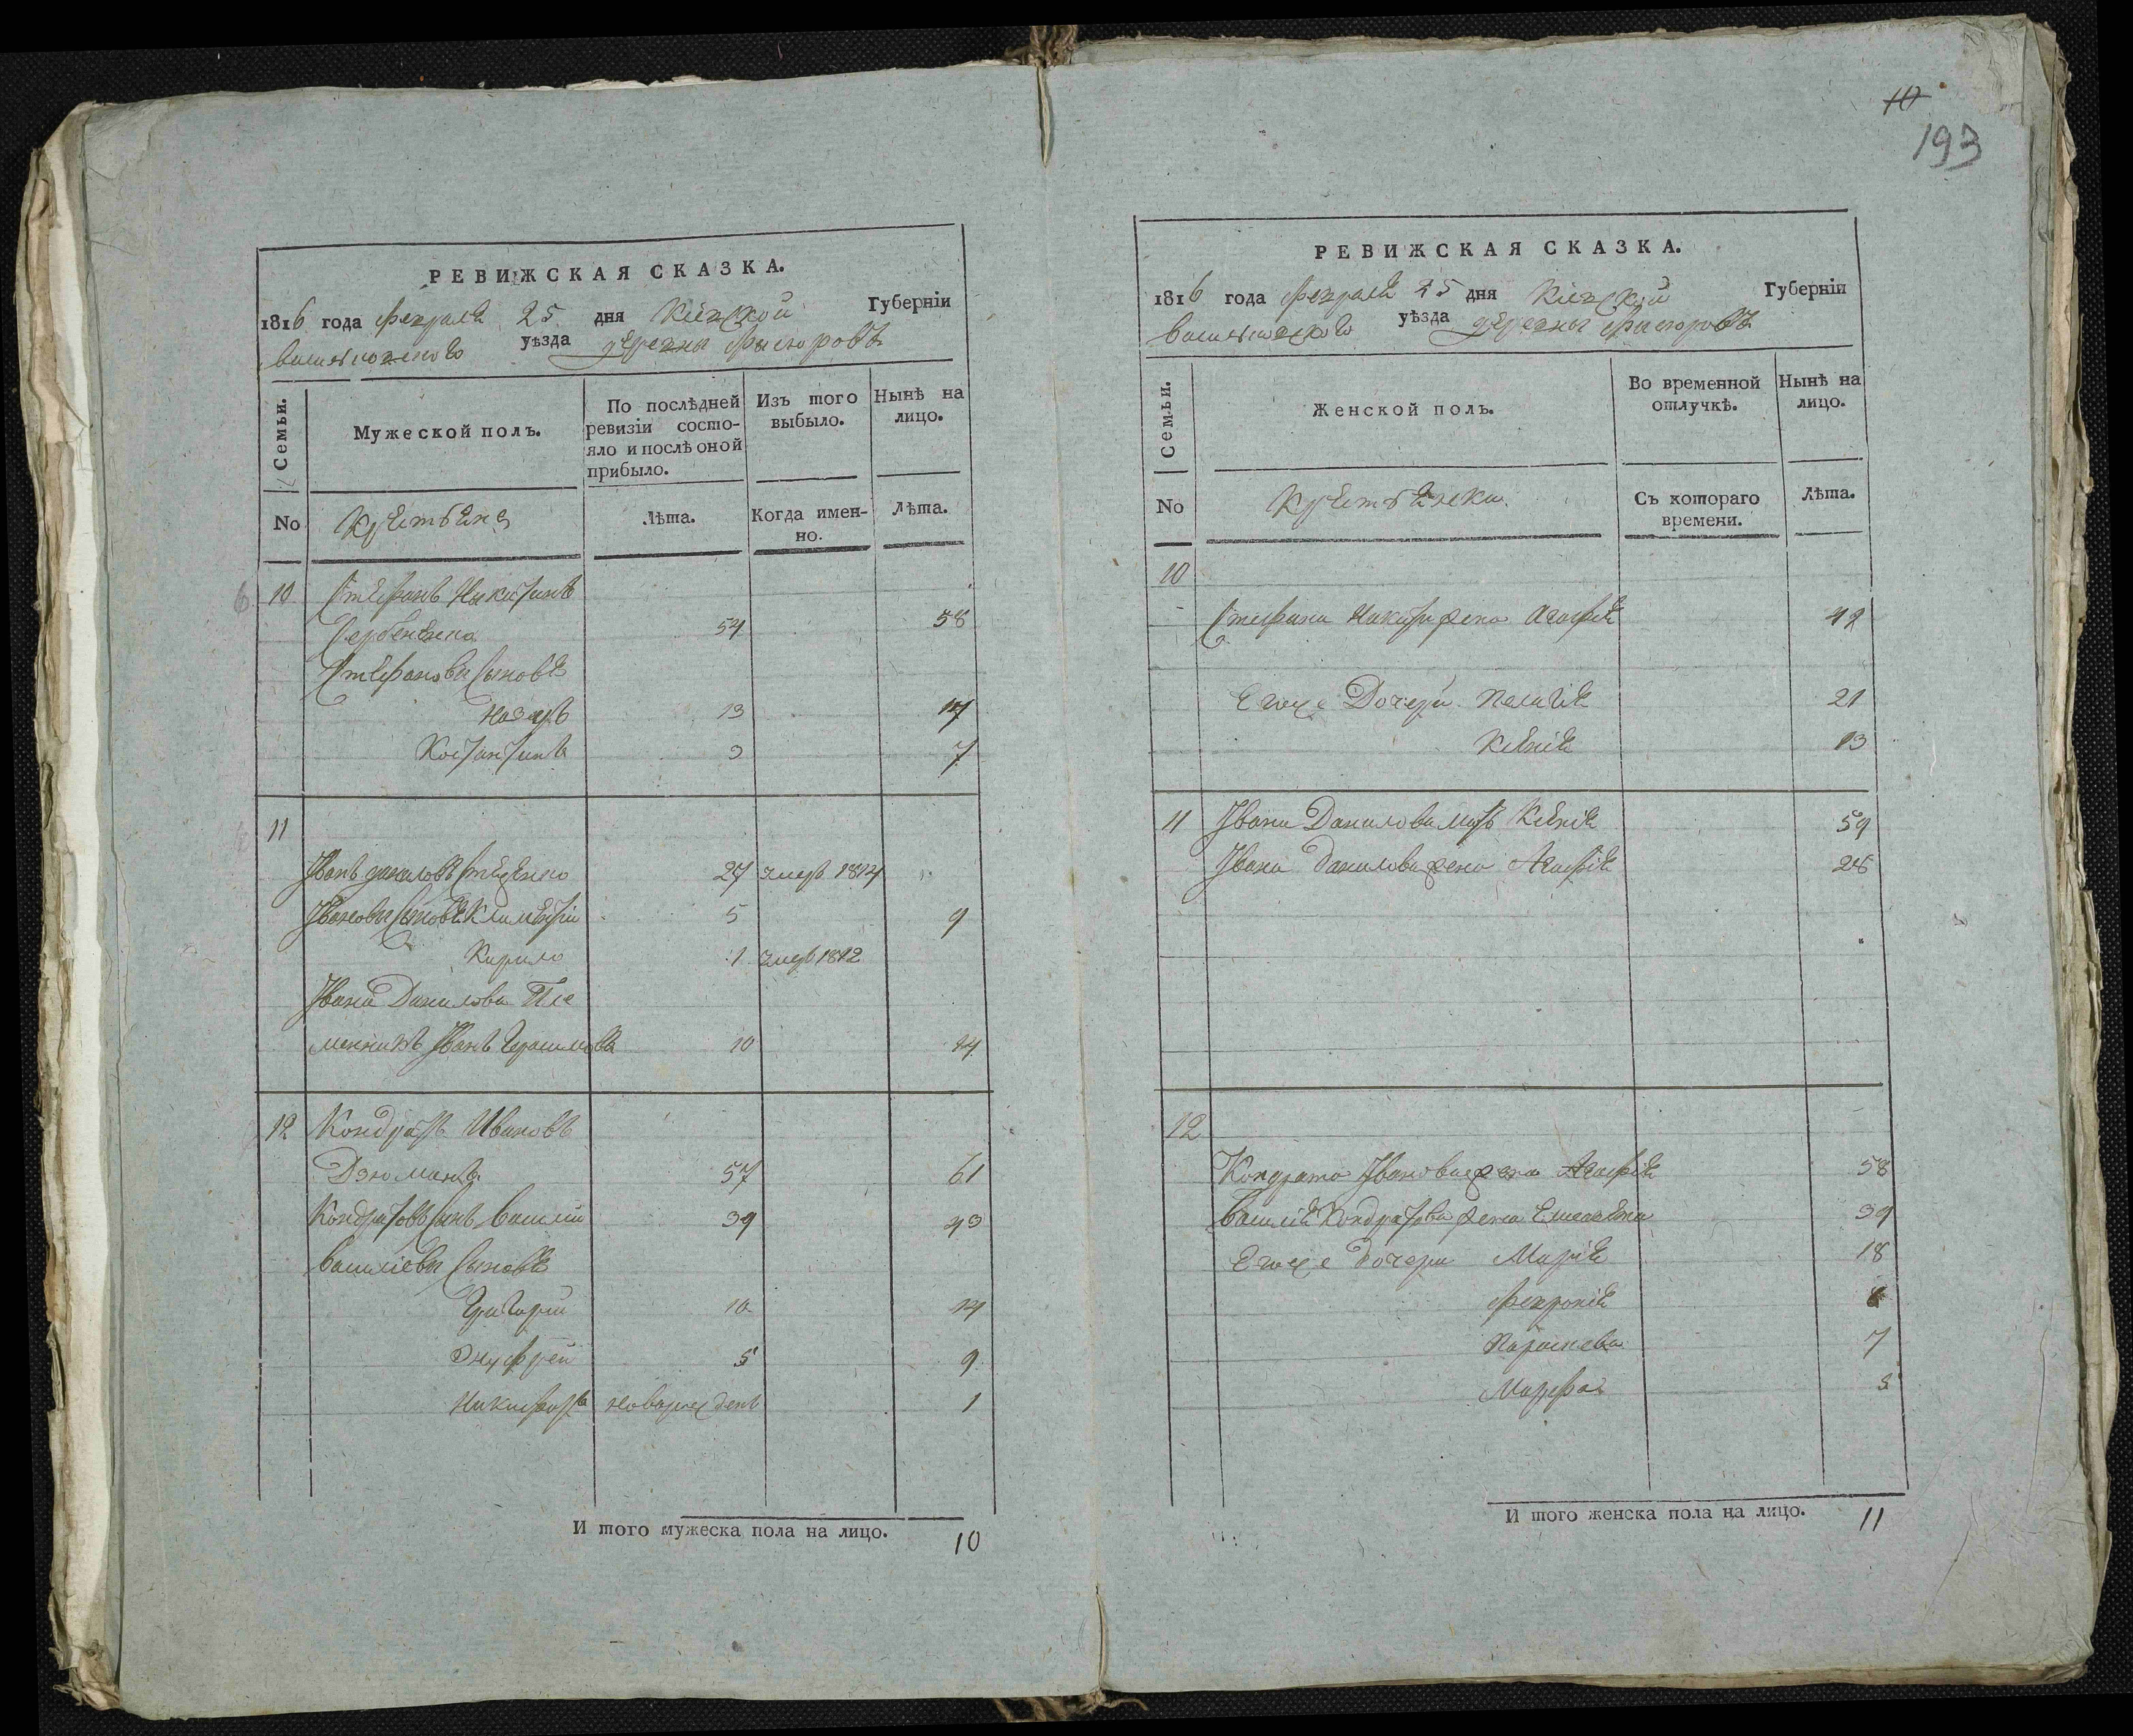 РЕВИЖСКАЯ СКАЗКА.
1816 года февраля 25 дня Кіевской Губерніи
Васильковского уѣзда деревни
Семьи.
Мужеской полъ.
По послѣдней ревизіи состояло и послѣ оной прибыло.
Изъ того выбыло.
Нынѣ на лицо.
No
Крестьяне
Лѣта.
Когда именно.
Лѣта.
10 Стефанъ Никитинъ
54 58
Стефановы сыновья
Назаръ 13 17
Костантинъ 3 7
11
Іванъ Даниловъ 27 умеръ 1814
Івановы сыновья Климентій 5 9
Кирило 1 умеръ 1812
Івана Данилова Пле
менникъ Іванъ Герасимовъ 10 14
12 Кондратъ Ивановъ
Дзюманъ 57 61
Кондратовъ сынъ Василій 39 43
Василіевы сыновья
Григорій 10 14
Онуфрей 5 9
Никифоръ новорожденъ 1
И того мужеска пола на лицо. 10
10
193
РЕВИЖСКАЯ СКАЗКА.
1816 года февраля 25 дня Кіевской Губерніи
Васильковского уѣзда деревни
Семьи.
Женской полъ.
Во временной отлучкѣ.
Нынѣ на лицо.
No
Крестьянски
Съ котораго времени.
Лѣта.
10
Стефана Никитина жена Агафія 42
Его же Дочери Пелагія 21
Ксенія 13
11 Івана Данилова мать Ксенія 59
Івана Данилова жена Агафія 28
12
Кондрата Іванова жена Агафія 58
Василія Кондратова жена 39
Его же дочери Марія 18
Февронія
Параскева 7
Марфа 3
И того женска пола на лицо. 11